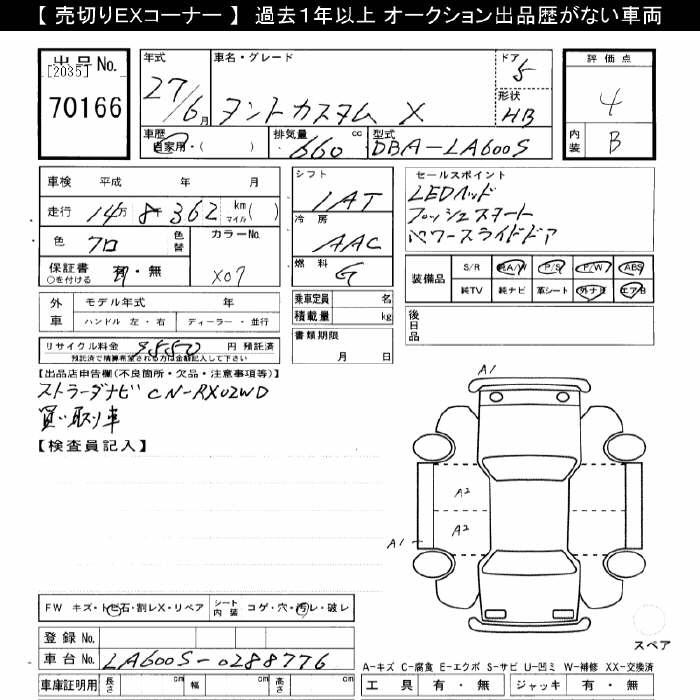 【 売切りEXコーナー 】 過去1年以上 オークション出品歴がない車両
出品No.
[2035]
70166
年式
27/6月
車名・グレード
タントカスタム X
ドア
5
形状
HB
車歴
自家用・(　)
排気量
660 cc
型式
DBA-LA600S
評価点
4
内装
B
車検 平成 年 月
走行 14万8千362 km マイル( )
色 クロ
色替
カラーNo.
X07
保証書 有・無
○を付ける
外車
モデル年式 年
ハンドル 左・右
ディーラー・並行
リサイクル料金 9880 円 預託済
預託済で精算希望される方は金額記入して下さい
シフト
IAT
冷房
AAC
燃料
G
乗車定員 名
積載量 kg
書類期限
月 日
セールスポイント
LEDヘッド
プッシュスタート
パワースライドドア
装備品
S/R 純A/W P/S P/W ABS
純TV 純ナビ 革シート 外ナビ エアB
後日品
【出品店申告欄(不良箇所・欠品・注意事項等)】
ストラーダナビ CN-RX02WD
買い取り車
【検査員記入】
A1
A2
A2
A1
FW キズ・トビ石・割レX・リペア
シート内装 コゲ・穴・汚レ・破レ
登録No.
車台No. LA600S-0288776
車庫証明用 長さ cm 幅 cm 高さ cm
スペア
A-キズ C-腐食 E-エクボ S-サビ U-凹ミ W-補修 XX-交換済
工具 有・無 ジャッキ 有・無